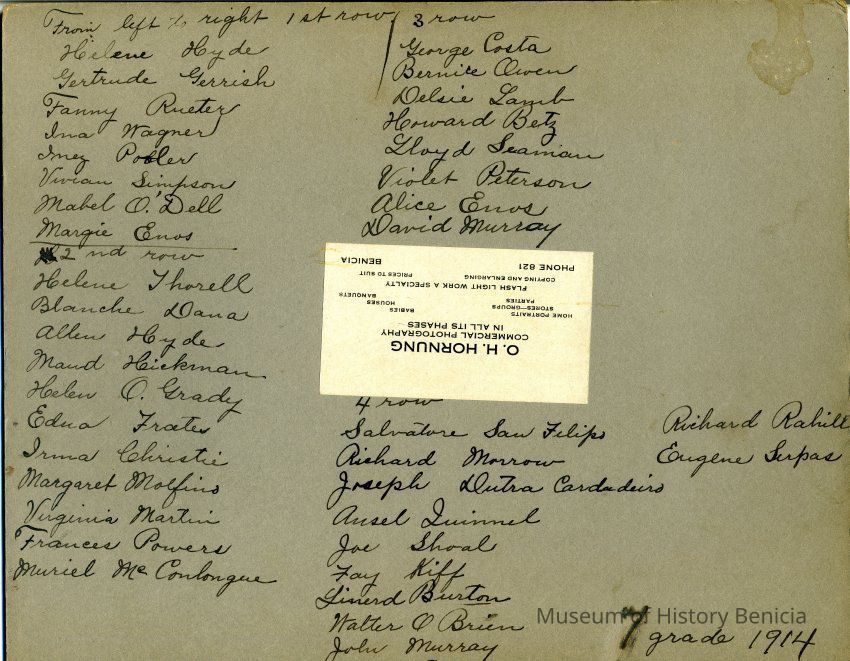 From left to right 1st row
Helene Hyde
Gertrude Gerrish
Fanny Rueter
Ina Wagner
Inez Pobler
Vivian Simpson
Mabel O'Dell
Margie Enos
2nd row
Helene Thorell
Blanche Dana
Allen Hyde
Maud Hickman
Helen O. Grady
Edna Frates
Irma Christie
Margaret Molfino
Virginia Martin
Frances Powers
Muriel McConlongue
3 row
George Costa
Bernice Owen
Delsie Lamb
Howard Betz
Lloyd Seaman
Violet Peterson
Alice Enos
David Murray
O. H. HORNUNG
COMMERCIAL PHOTOGRAPHY
IN ALL ITS PHASES
HOME PORTRAITS BABIES
STORES—GROUPS HOUSES
PARTIES BANQUETS
FLASH LIGHT WORK A SPECIALTY
COPYING AND ENLARGING PRICES TO SUIT
PHONE 821 BENICIA
4 row
Salvatore San Filipo
Richard Morrow
Joseph Dutra Cardadeiro
Ansel Quinnel
Joe Shoal
Fay Kiff
Linerd Burton
Walter O'Brien
John Murray
Richard Rahill
Eugene Serpas
7 grade 1914
Museum of History Benicia